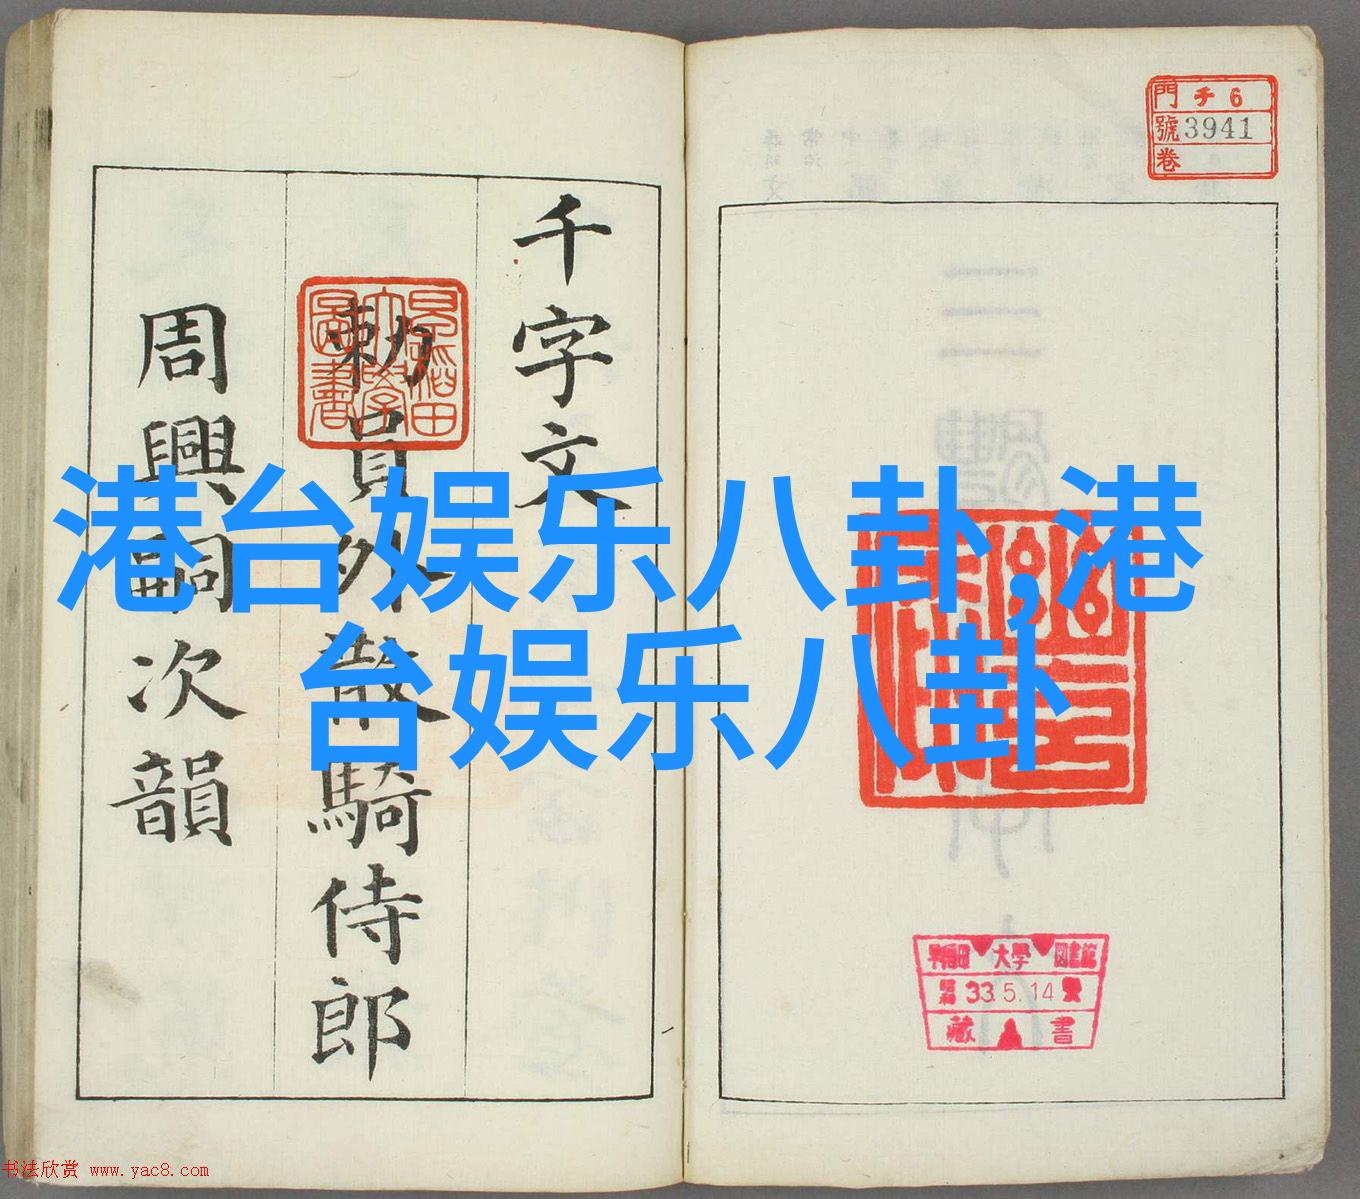 千字文
勑員外散騎侍郎
周興嗣次韻
港台娱乐八卦,港
台娱乐八卦
早稲田
大學
圖書
門 チ 6
號 3941
卷
早稲田大學圖書館
昭和 33.5.14
藏書
书法欣赏 www.yac8.com